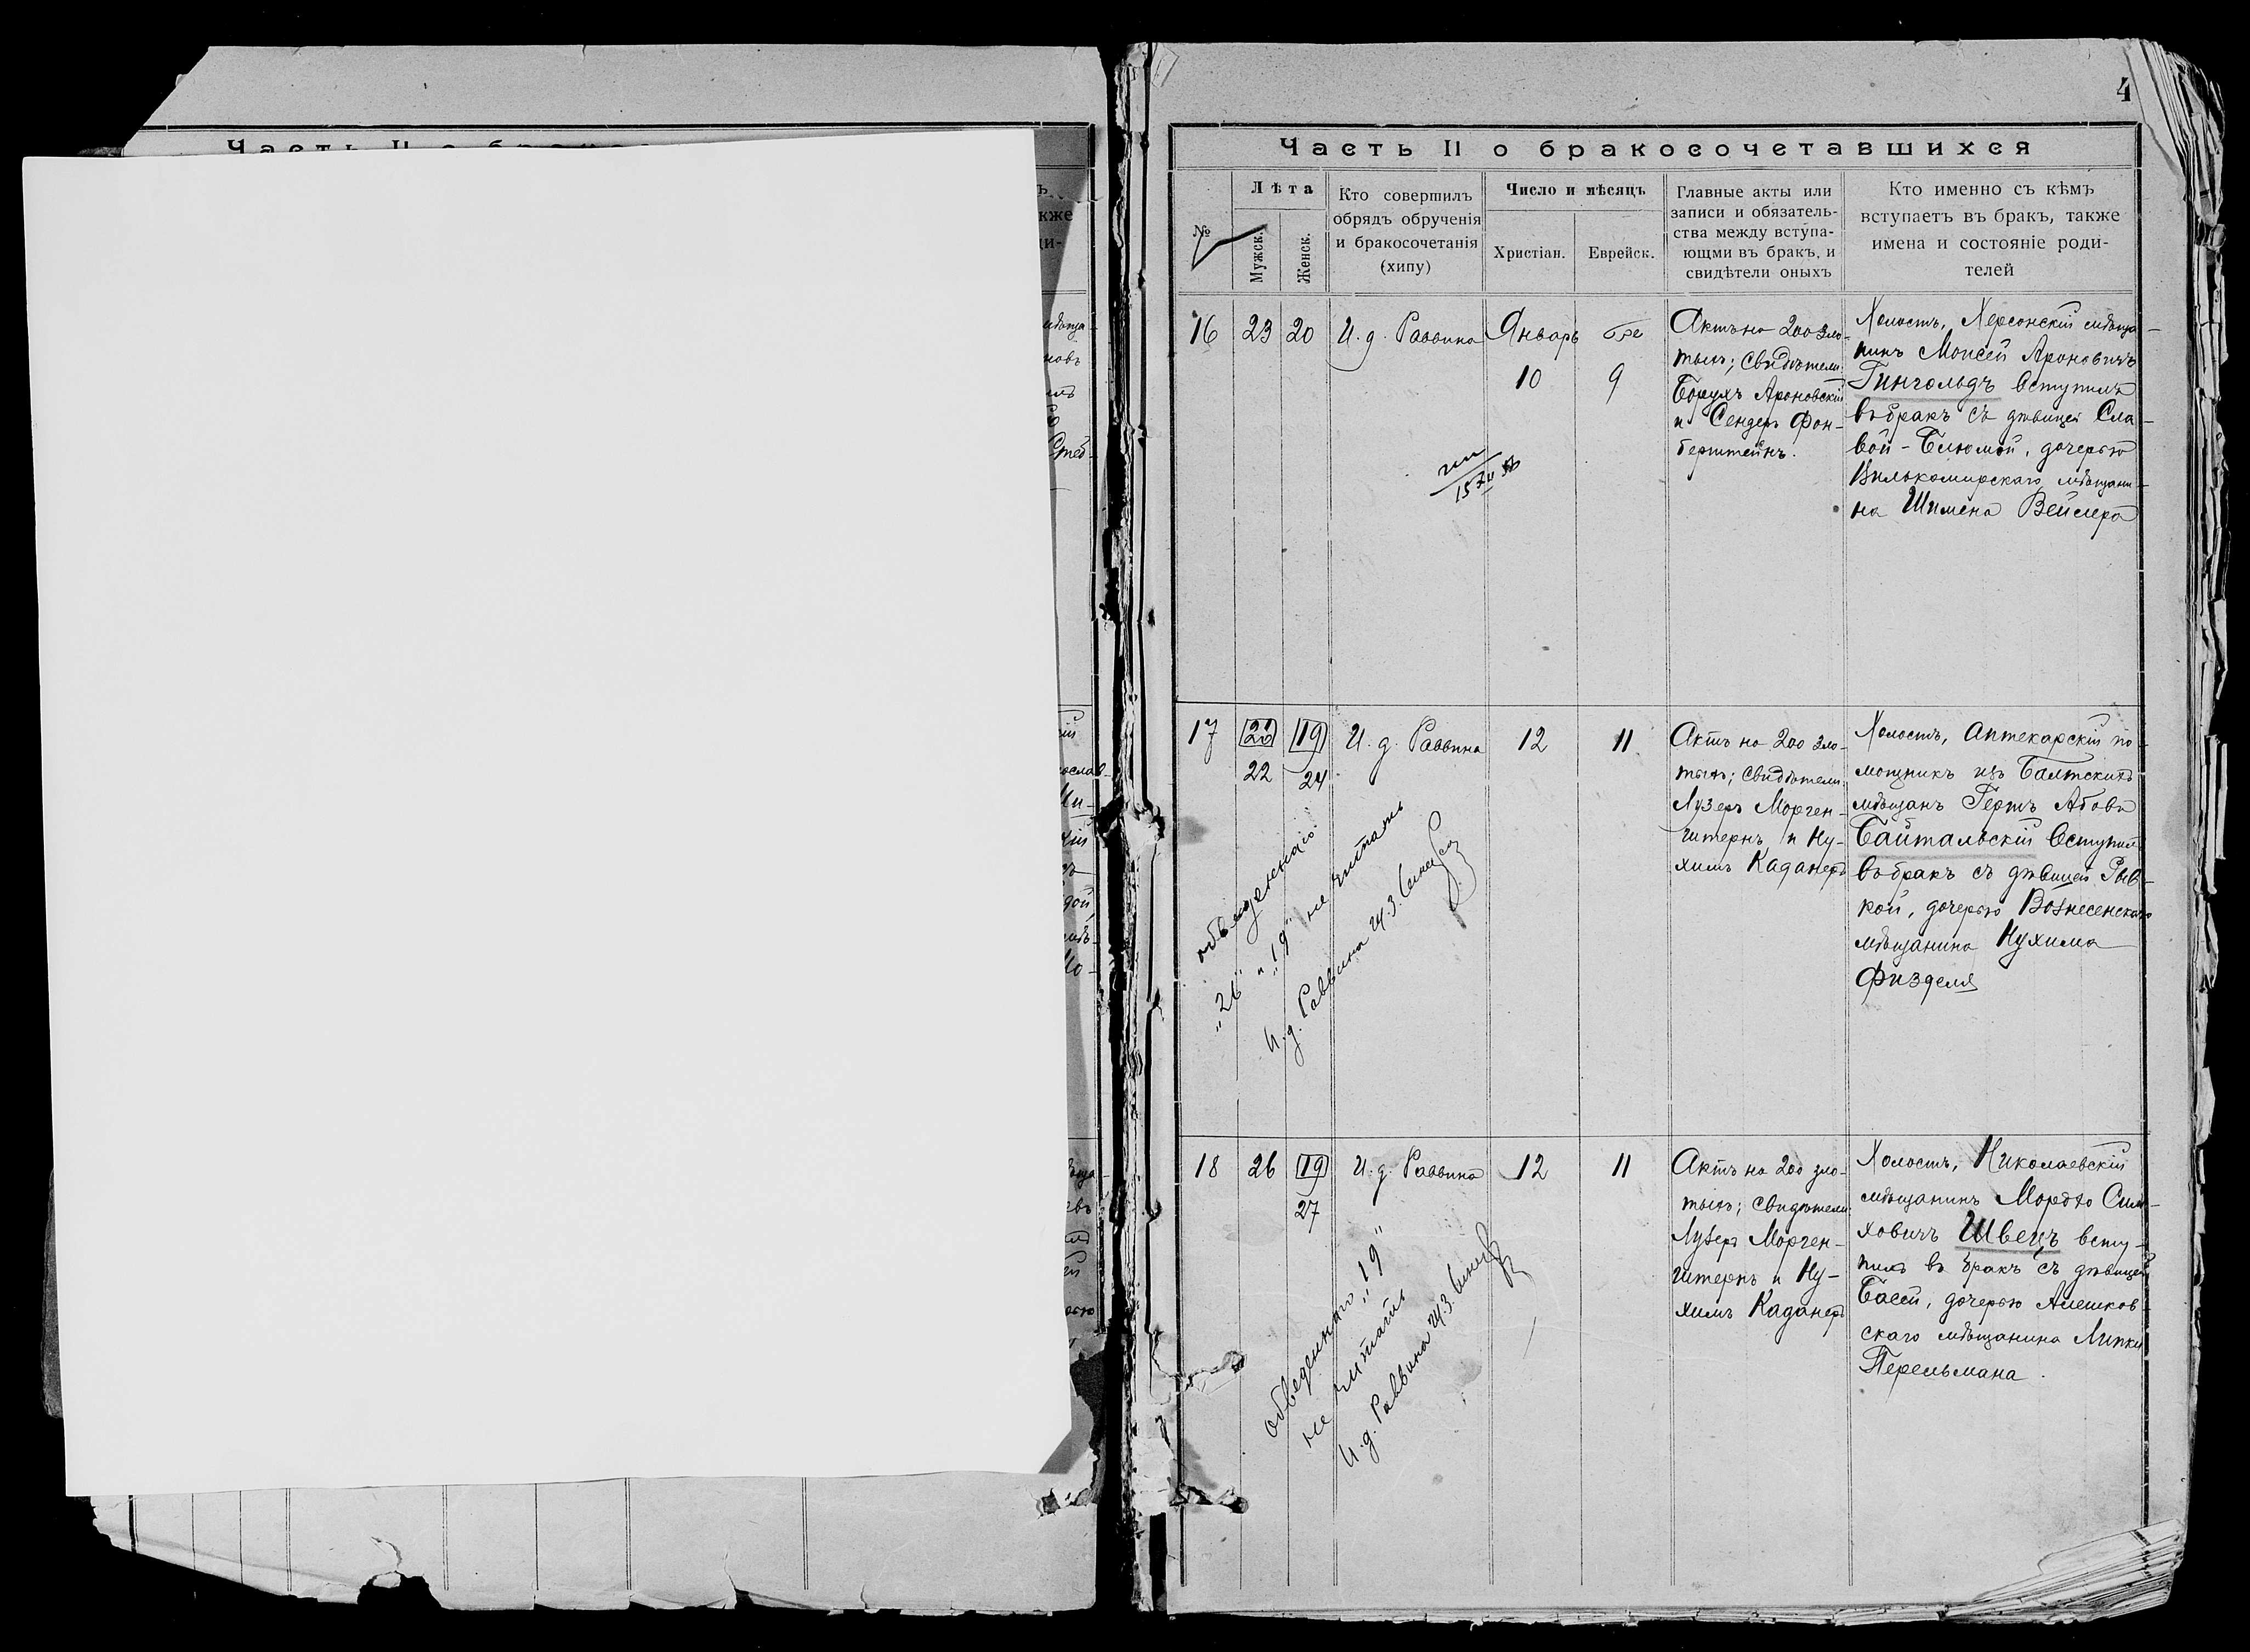 4
Часть II о бракосочетавшихся
№
Лѣта
Мужск.
Женск.
Кто совершилъ
обрядъ обрученія
и бракосочетанія
(хипу)
Число и мѣсяцъ
Христіан.
Еврейск.
Главные акты или
записи и обязатель-
ства между вступа-
ющми въ бракъ, и
свидѣтели оныхъ
Кто именно съ кѣмъ
вступаетъ въ бракъ, также
имена и состояніе роди-
телей
16
23
20
И. д. Раввина
Январь
10
9
Актъ на 200 зло-
тыхъ; свидѣтели
Борухъ Ароновскій
и Сендеръ Фон-
берштейнъ.
Холостъ, Херсонскій мѣща-
нинъ Моисей Ароновичъ
Гингольдъ вступилъ
въ бракъ съ дѣвицей Сла-
вой-Блюмой, дочерью
Вилькомирскаго мѣщани-
на Шимена Вейлера
17
22
19
24
И. д. Раввина
12
11
Актъ на 200 зло-
тыхъ; свидѣтели
Лузеръ Морген-
штернъ и Ну-
химъ Каданеръ
Холостъ, аптекарскій по-
мощникъ изъ Балтскихъ
мѣщанъ Герть Абовъ
Байтальскій вступил
въ бракъ съ дѣвицей Рыв-
кой, дочерью Вознесенскаго
мѣщанина Нухима
Физделя
обведеннаго
„26" „19" не читать
И. д. Раввина
18
26
19
27
И. д. Раввина
12
11
Актъ на 200 зло-
тыхъ; свидѣтели
Лузеръ Морген-
штернъ и Ну-
химъ Каданеръ
Холостъ, Николаевскій
мѣщанинъ Мордко Сим-
ховичъ Швецъ всту-
пилъ въ бракъ съ дѣвицей
Басей, дочерью Алешков-
скаго мѣщанина Липки
Перельмана.
обведеннаго „19"
не читать
И. д. Раввина